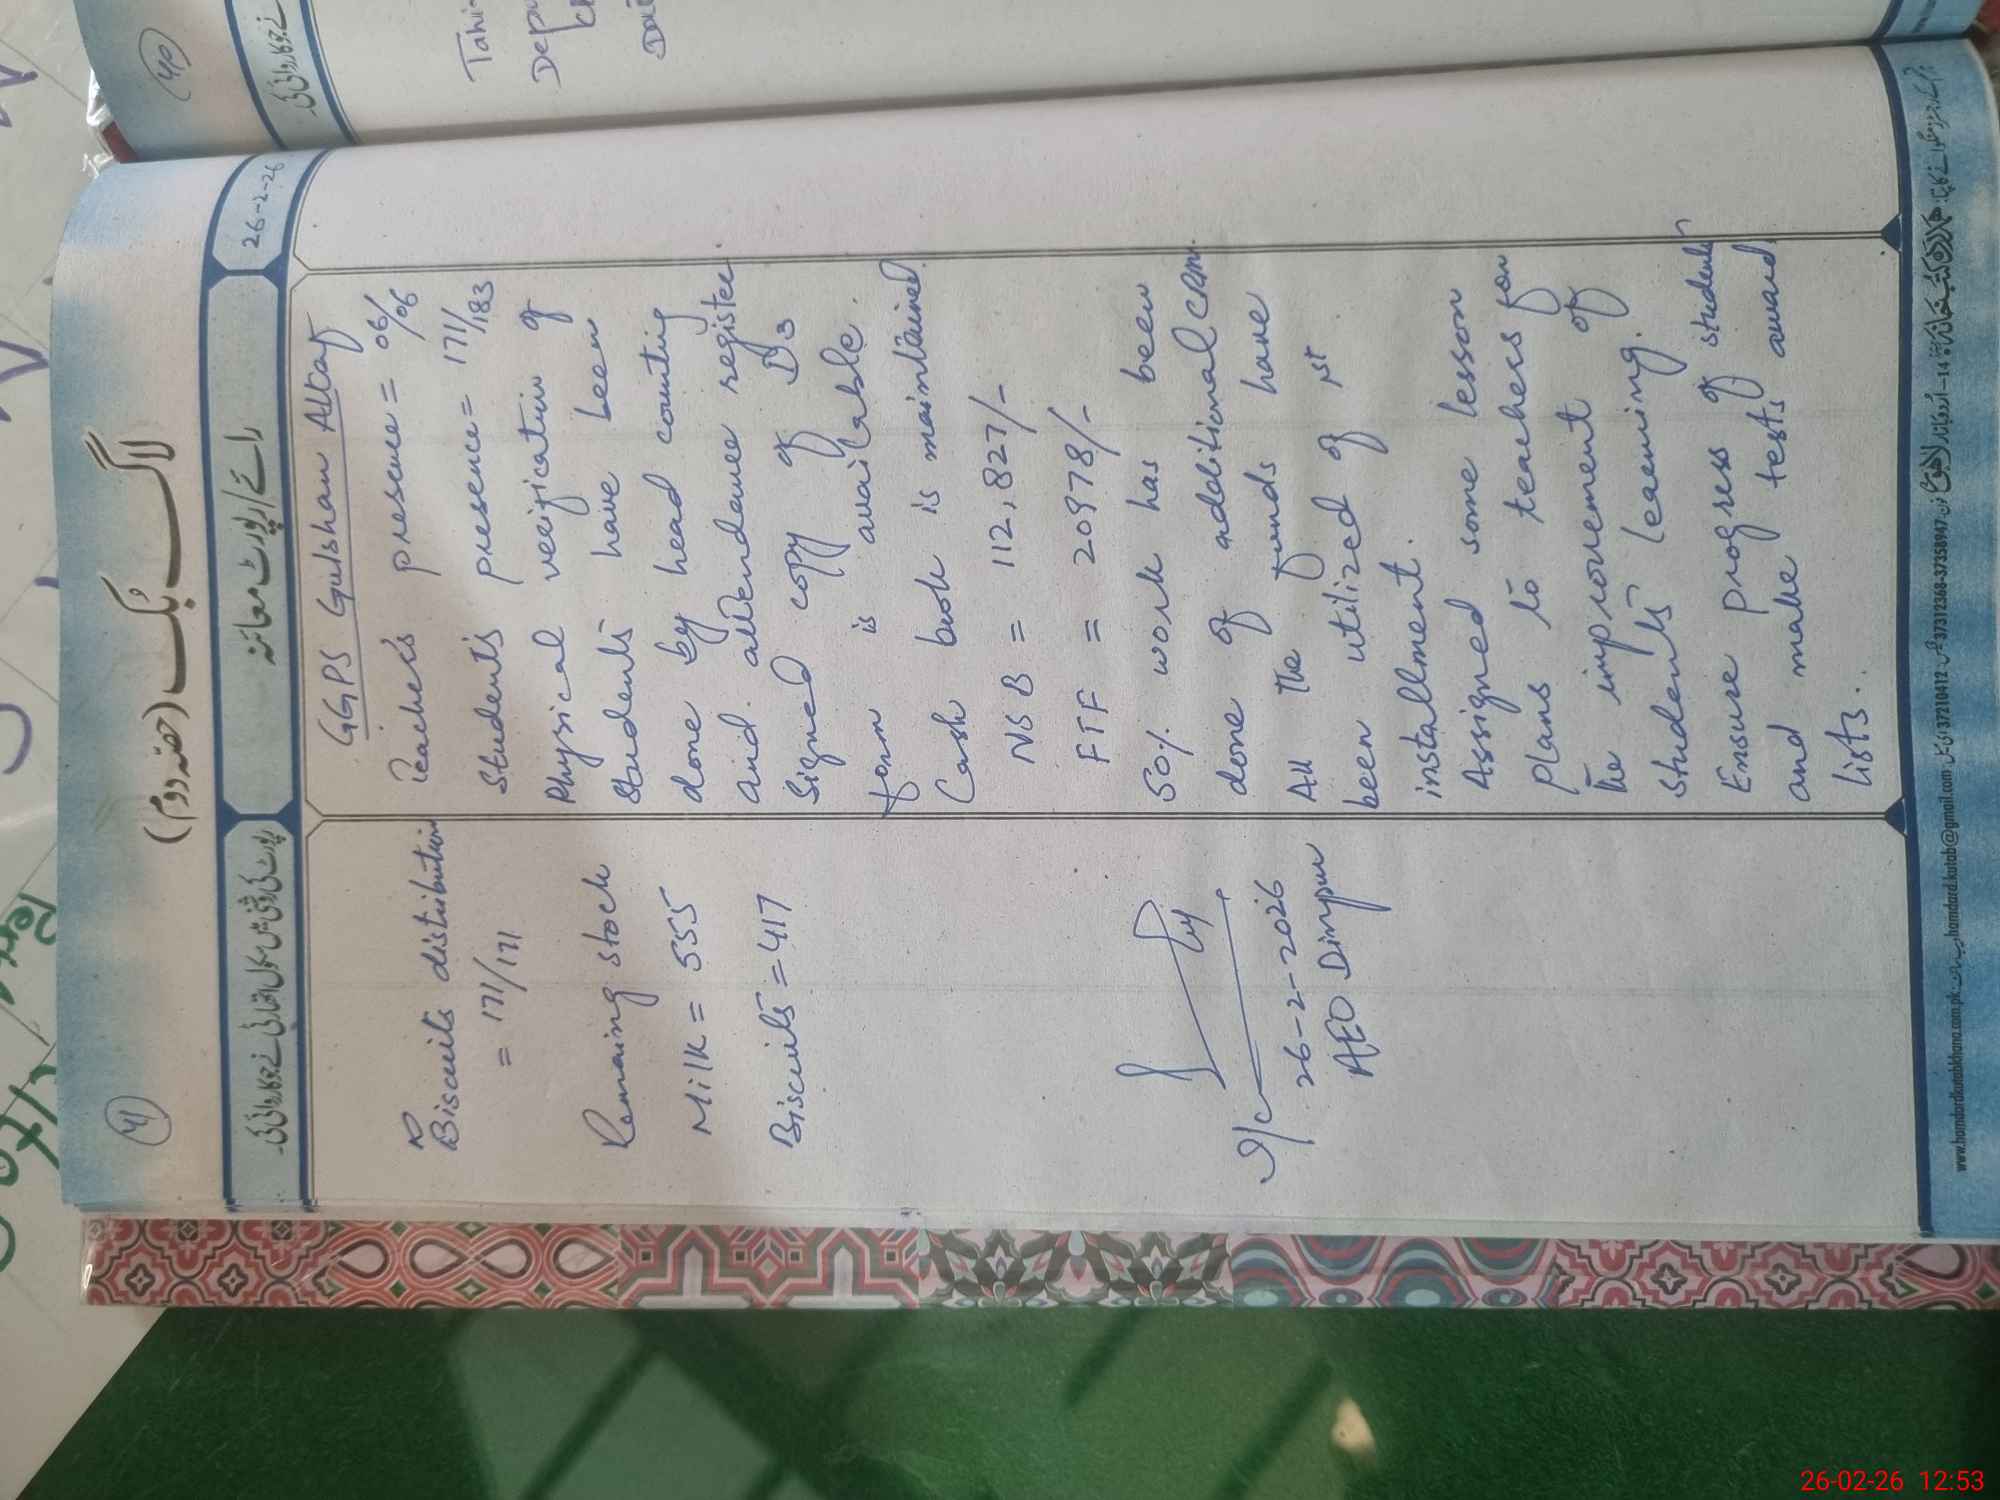 41
لاگ بُک (حصّہ دوم)
26-2-26
رائے / رپورٹ معائنہ
رپورٹ کی روشنی میں سکول اتھارٹی نے جو کاروائی کی۔
GGPS Gulshan Altaf
Teacher's presence = 06/06
Student's presence = 171/183
Physical verification of
students have been
done by head counting
and attendance register
Signed copy of D3
form is available.
Cash book is maintained.
NSB = 112,827/-
FTF = 20978/-
50% work has been
done of additional CRM.
All the funds have
been utilized of 1st
installment.
Assigned some lesson
plans to teachers for
the improvement of
students learning.
Ensure progress of students
and make tests award
lists.
Biscuits distribution
= 171/171
Remaing stock
Milk = 555
Biscuits = 417
26-2-2026
AEO Dinpur
www.hamdardkutabkhana.com.pk
hamdard.kutab@gmail.com
37210412
37312368-37358947
40
نے جو کاروائی کی۔
26-02-26 12:53